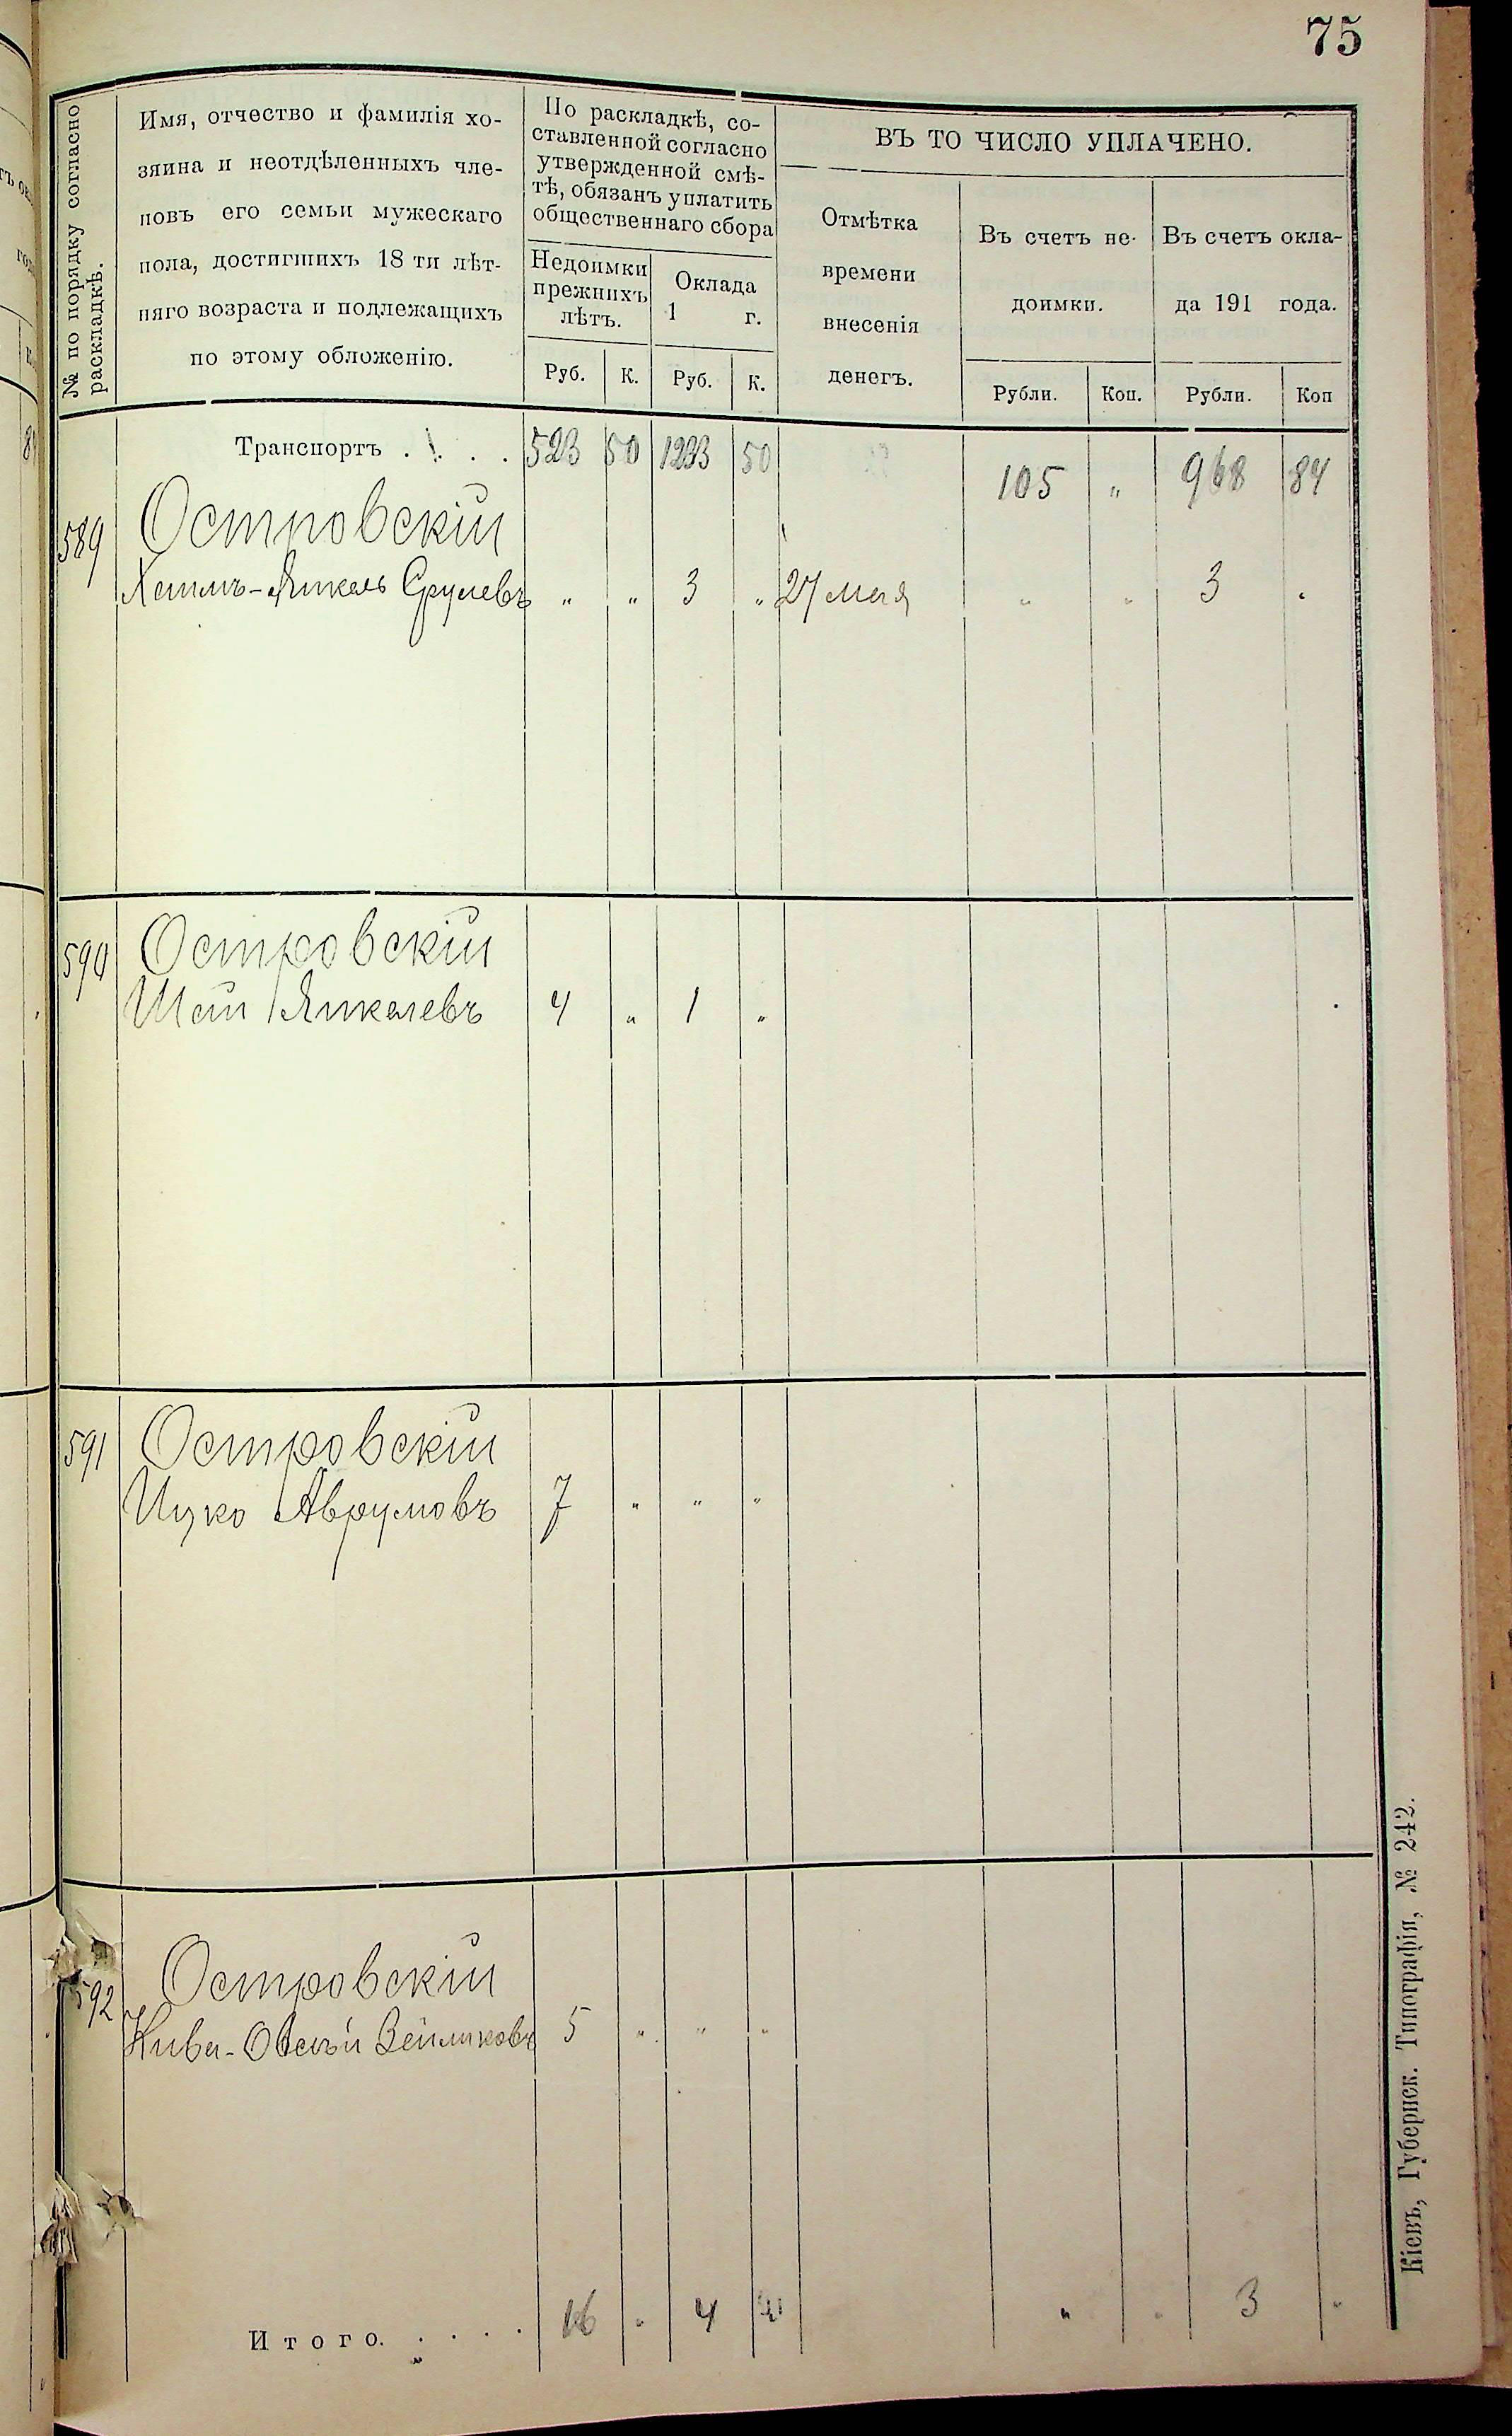 75
№ по порядку согласно
раскладкѣ.
Имя, отчество и фамилія хо-
зяина и неотдѣленныхъ чле-
новъ его семьи мужескаго
пола, достигшихъ 18 ти лѣт-
няго возраста и подлежащихъ
по этому обложенію.
По раскладкѣ, со-
ставленной согласно
утвержденной смѣ-
тѣ, обязанъ уплатить
общественнаго сбора
Недоимки
прежнихъ
лѣтъ.
Оклада
1 г.
Руб. К. Руб. К.
ВЪ ТО ЧИСЛО УПЛАЧЕНО.
Отмѣтка
времени
внесенія
денегъ.
Въ счетъ не-
доимки.
Въ счетъ окла-
да 191 года.
Рубли. Коп. Рубли. Коп
Транспортъ . . . . 523 50 1233 50 105 „ 968 84
589 Островскій
Хаимъ-Янкель Срулевъ „ „ 3 „ 27 мая „ „ 3 „
590 Островскій
Шай Янкелевъ 4 „ 1 „
591 Островскій
Ицко Аврумовъ 7 „ „ „
592 Островскій
Кива- Зейликовъ 5 „ „ „
Итого. . . . . 16 „ 4 „ „ „ 3 „
Кіевъ, Губернск. Типографія, № 242.